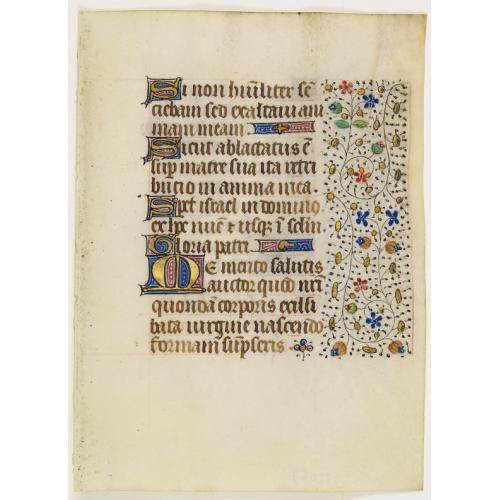 Si non hu̅iliter se̅
ciebam sed exaltaui ani
mam meam
Sicut ablactatus e̅
sup matre sua ita retri
butio in anima mea.
Spet israel in domino
ex hoc nu̅c et usq; i̅ seculu̅
Gloria patri.
Memento salutis
auctor quod nri
quonda̅ corporis ex illi
bata uirgine nascendo
formam su̅pseris